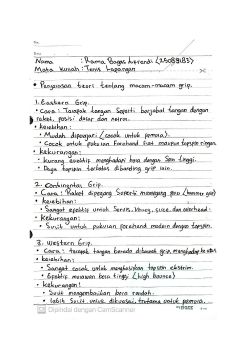 No.
Date.
Nama : Rama Bagas Lorendi (25089183)
Mata Kuliah : Tenis Lapangan
• Penjelasan teori tentang macam-macam grip.
1. Eastern Grip.
• Cara : Telapak tangan seperti berjabat tangan dengan
raket, posisi datar dan netral.
• kelebihan :
• Mudah dipelajari (cocok untuk pemula).
• Cocok untuk pukulan forehand flat maupun topspin ringan.
• Kekurangan :
• kurang efektif menghadapi bola dengan spin tinggi.
• Daya topspin terbatas dibanding grip lain.
2. Continental Grip.
• Cara : Raket dipegang seperti memegang palu (hammer grip)
• kelebihan :
• Sangat efektif untuk Servis, Volley, slice, dan overhead.
• Kekurangan :
• Sulit untuk pukulan forehand modern dengan topspin.
3. Western Grip.
• Cara : telapak tangan berada dibawah grip, menghadap ke atas
• kelebihan :
• Sangat cocok untuk menghasilkan topspin ekstrim.
• Efektif melawan bola tinggi (high bounce)
• kekurangan :
• Sulit mengembalikan bola rendah.
• lebih sulit untuk dikuasai, terutama untuk pemula.
Dipindai dengan CamScanner